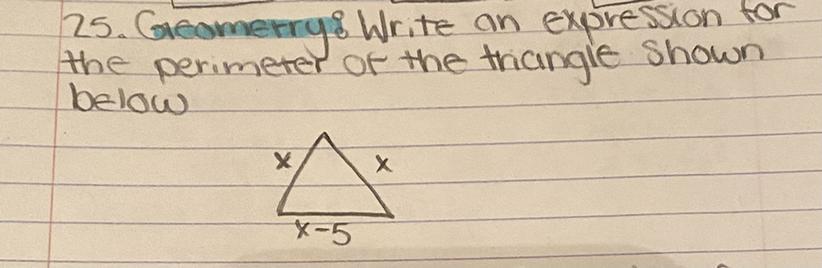 25. Geomerry: Write an expression for
the perimeter of the triangle shown
below
x x
x-5